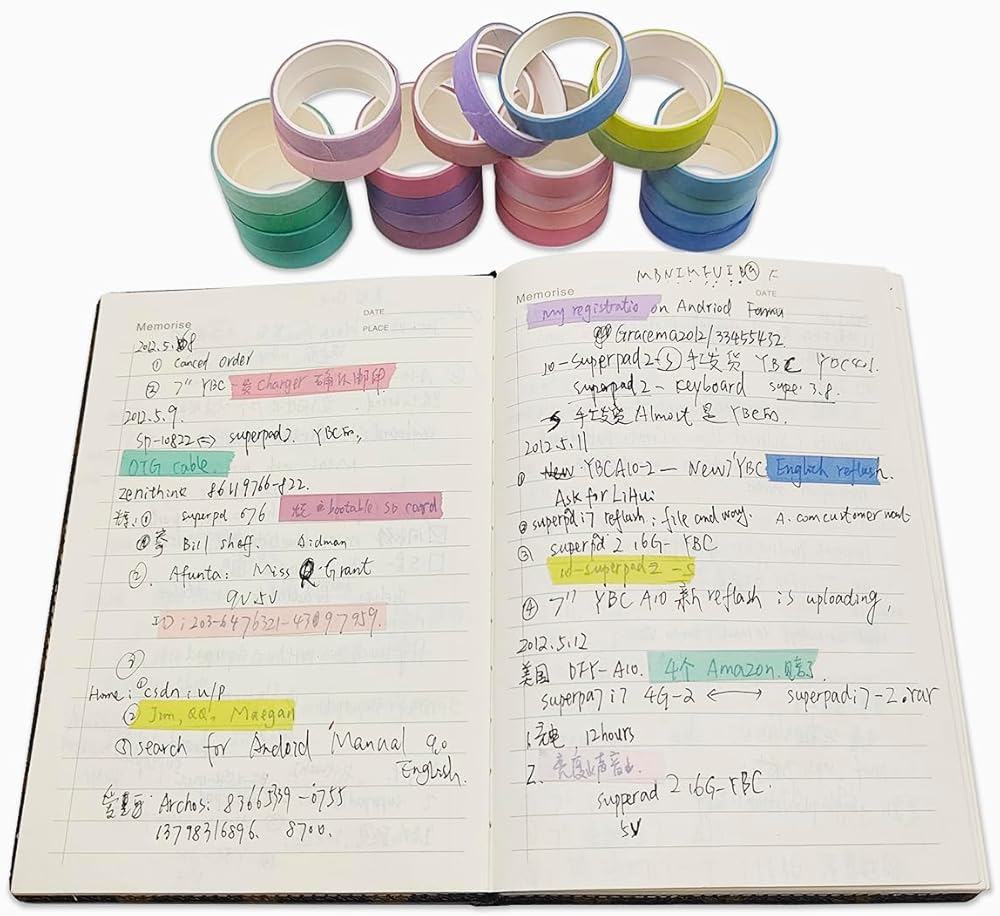 Memorise
DATE
PLACE
2012.5.8
① Canced order
② 7" YBC 发 Charger 确认邮件
2012.5.9.
Sp-10822 <=> superpad2. YBC
OTG cable.
Zenithink 86119766-822.
① superpd 076 bootable SD caard
Bill shoff. Aidman
②. Afunta: Miss Q. Grant
9V.5V
ID:203-6476321-43097959.
③
Home: ① csdn: u/p
② Jim, QQ, Maegan
③ search for Android Manual 4.0
English.
Archos: 83665339-0755
13798316896. 8700.
MBNIMFUIB④ F
Memorise
DATE
my registratio on Andriod Foamu
Gracema2012/33455432
10-Superpad2-⑤ 发货 YBC
superpad2 - keyboard supe: 3.8.
Almost 是 YBC
2012.5.11
① YBCA10-2 — New7'YBC English reflash.
Ask for LiHui
② superpdi7 reflash: file and way. A.com customer want
③ superpd 2 16G-YBC
10-superpad2 -5
④ 7" YBC A10 新 reflash is uploading,
2012.5.12
美国 DFY-A10. 4个 Amazon.
superpa7 i7 4G-2 <—> superpadi7-2.rar
1.充电 12hours
2. 亮度 声音
supperad 2 16G-YBC.
5V